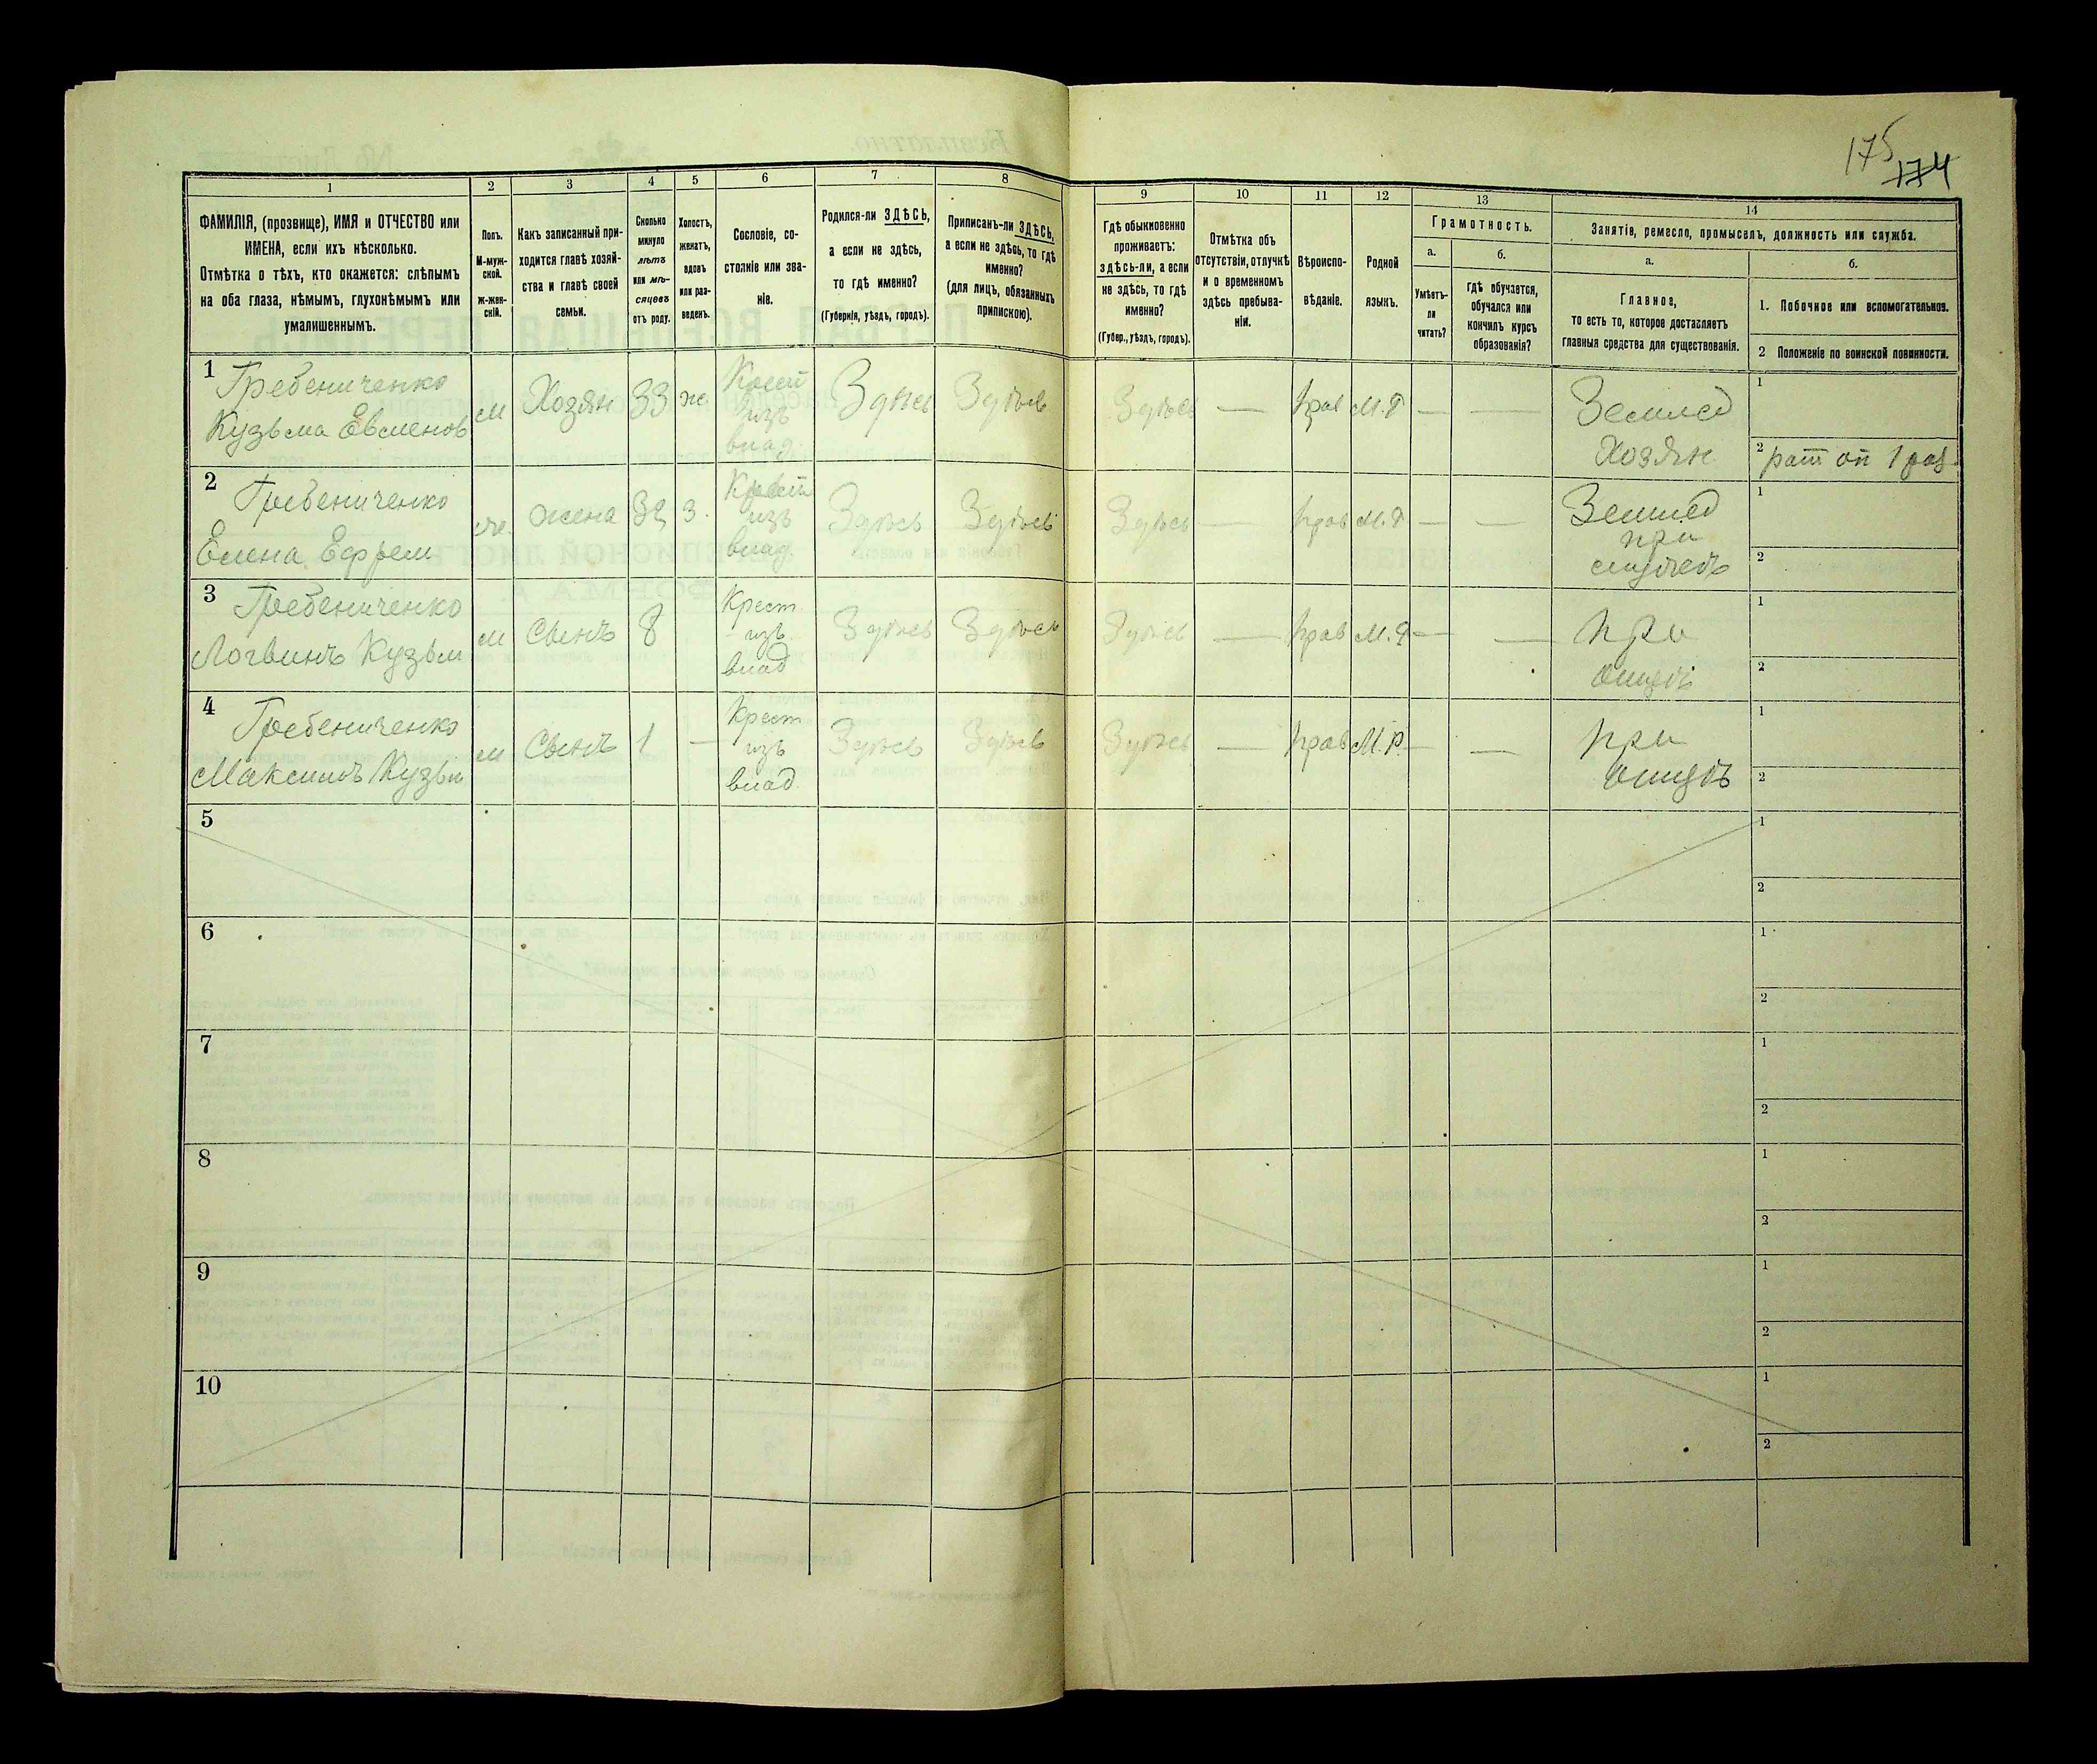 175
174
1
2
3
4
5
6
7
8
9
10
11
12
13
14
ФАМИЛІЯ, (прозвище), ИМЯ и ОТЧЕСТВО или
ИМЕНА, если ихъ нѣсколько.
Отмѣтка о тѣхъ, кто окажется: слѣпымъ
на оба глаза, нѣмымъ, глухонѣмымъ или
умалишеннымъ.
Полъ.
М-муж-
ской.
ж-жен-
скій.
Какъ записанный при-
ходится главѣ хозяй-
ства и главѣ своей
семьи.
Сколько
минуло
лѣтъ
или мѣ-
сяцевъ
отъ роду.
Холостъ,
женатъ,
вдовъ
или раз-
веденъ.
Сословіе, со-
стояніе или зва-
ніе.
Родился-ли ЗДѢСЬ,
а если не здѣсь,
то гдѣ именно?
(Губернія, уѣздъ, городъ).
Приписанъ-ли ЗДѢСЬ,
а если не здѣсь, то гдѣ
именно?
(для лицъ, обязанныхъ
припискою).
Гдѣ обыкновенно
проживаетъ:
здѣсь-ли, а если
не здѣсь, то гдѣ
именно?
(Губер., уѣздъ, городъ).
Отмѣтка объ
отсутствіи, отлучкѣ
и о временномъ
здѣсь пребыва-
ніи.
Вѣроиспо-
вѣданіе.
Родной
языкъ.
Грамотность.
а.
Умѣетъ-
ли
читать?
б.
гдѣ обучается,
обучался или
кончилъ курсъ
образованія?
Занятіе, ремесло, промыселъ, должность или служба.
а.
Главное,
то есть то, которое доставляетъ
главныя средства для существованія.
б.
1. Побочное или вспомогательное.
2 Положеніе по воинской повинности.
1
Гребениченко
Кузьма Евменов
м
Хозян
33
ж.
Крест
изъ
влад.
Здѣсь
Здѣсь
Здѣсь
—
прав
М.Р
—
—
Землед
Хозян
1
2 рат оп 1 раз
2
Гребениченко
Елена Ефрем
ж.
жена
32
з.
Крест
изъ
влад.
Здѣсь
Здѣсь
Здѣсь
—
прав
М.Р
—
—
Землед
при
1
2
3
Гребениченко
Логвинъ Кузьм
м
Сынъ
8
Крест
изъ
влад
Здѣсь
Здѣсь
Здѣсь
—
прав
М.Р
—
—
при
отцѣ
1
2
4
Гребениченко
Максимъ Кузьм
м
Сынъ
1
—
Крест
изъ
влад.
Здѣсь
Здѣсь
Здѣсь
—
прав
М.Р.
—
—
при
отцѣ
1
2
5
1
2
6
1
2
7
1
2
8
1
2
9
1
2
10
1
2